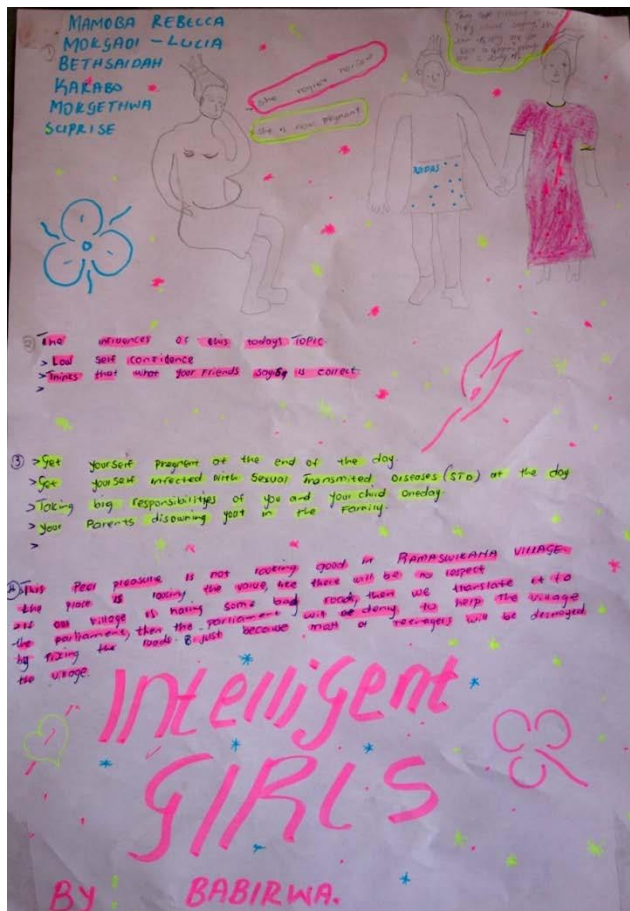 MAMOBA REBECCA
MOKGADI - LUCIA
BETHSAIDAH
KARABO
MOKGETHWA
SUPRISE
①
She regret herself
She is now pregnant
ADIDAS
② The influences of this todays Topic
> Loal self confidence
> Thinks that what your Friends says is correct
>
③ > Get yourself pregnant at the end of the day.
> Get yourself infected with Sexual Transmited Diseases (STD) at the day
> Taking big responsibilityes of you and your child oneday.
> Your Parents disowning you in the Family.
>
④ This Peer pleasure is not looking good in RAMASWIKANA VILLAGE
the place is losing the value, like there will be no respect
> If our village is having some bad roads, then we translate it to
the parliament, then the parliament will be deniy to help the village
by fixing the roads. & just because most of teenagers will be destroyed
the village.
Intelligent
GIRLS
BY BABIRWA.